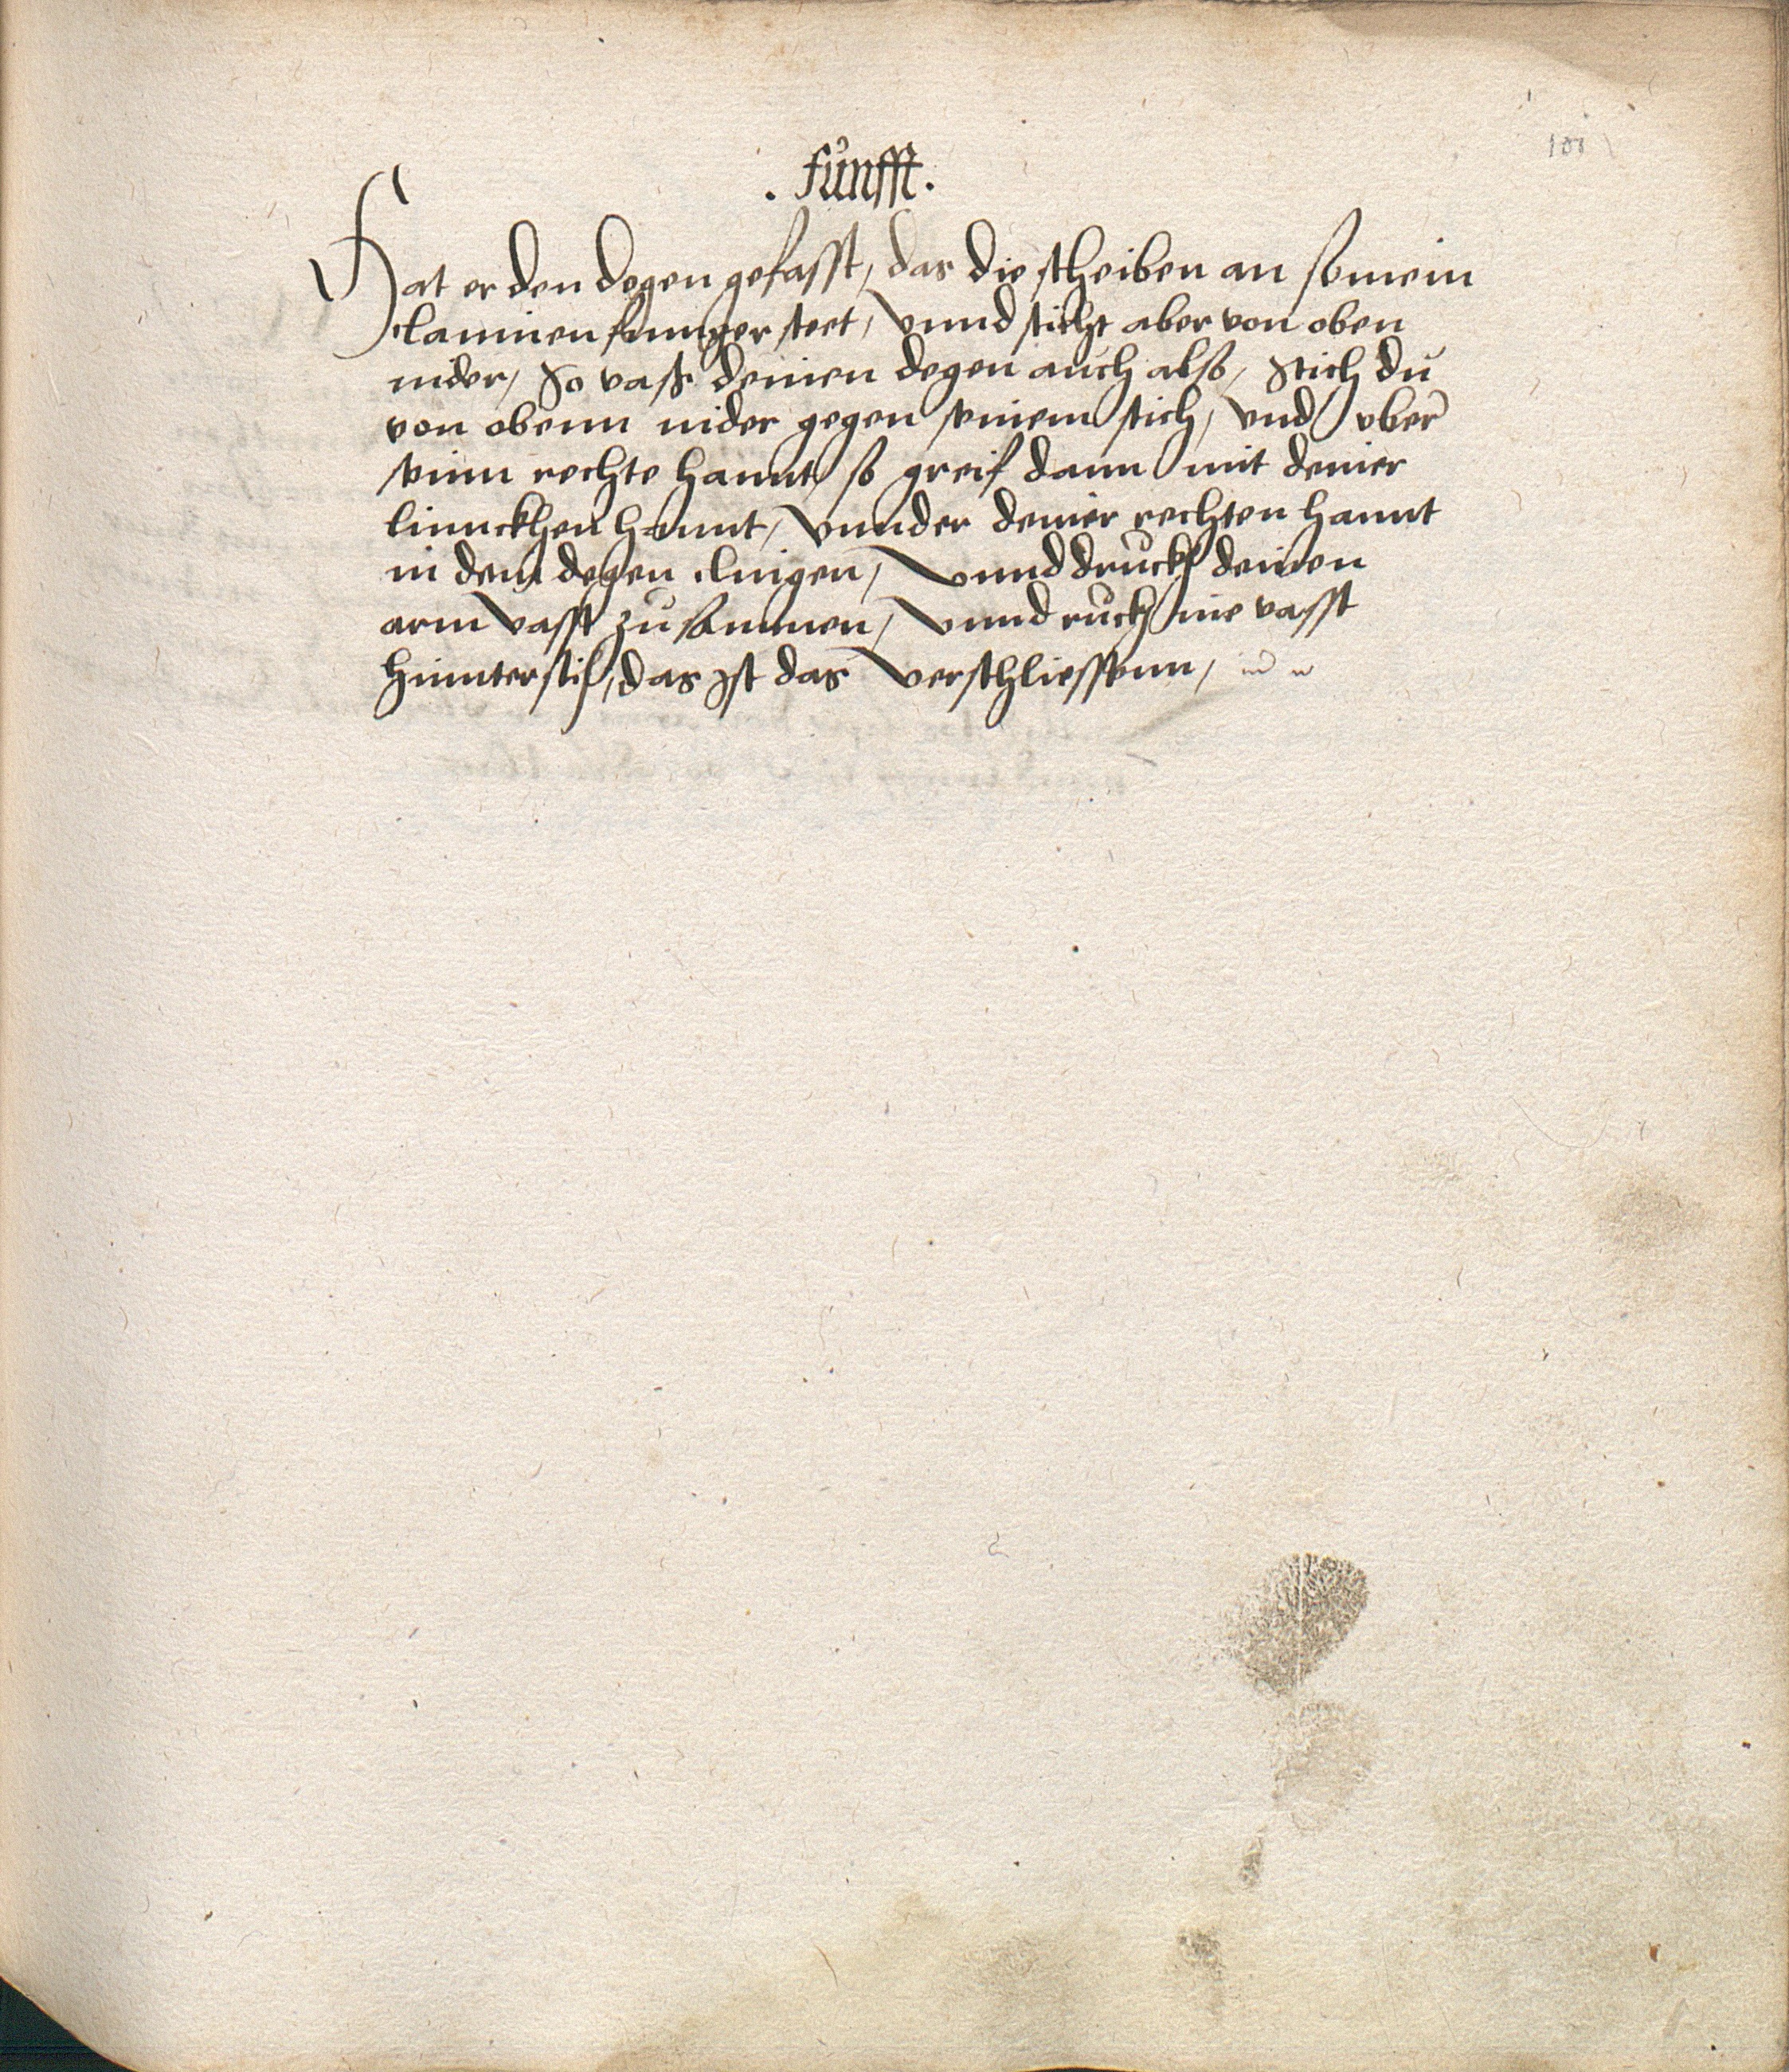 101
. fünfft .
Hat er den degen gefasst, das die scheiben an seinem
clainnen finnger steet, Vnnd sticht aber von oben
nider, So vass deinen degen auch also, Stich du
von obenn nider gegen seinem stich, Vnd vber
seinn rechte hannt, so greif dann mit deiner
linnckhen hannt, Vnnder deiner rechten hannt
in dein degen clingen, Vnnd druckh deinen
arm vasst zu sammen, Vnnd ruckh inn vasst
hinnter sich, das ist das Verschliessenn,